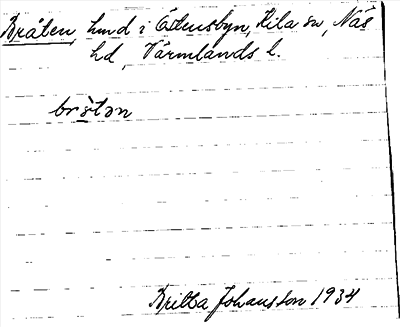 Bråten, hmd i Östmsbyn, Kila sn, Näs
hd, Värmlands l.
bråtən
Britta Johansson 1934